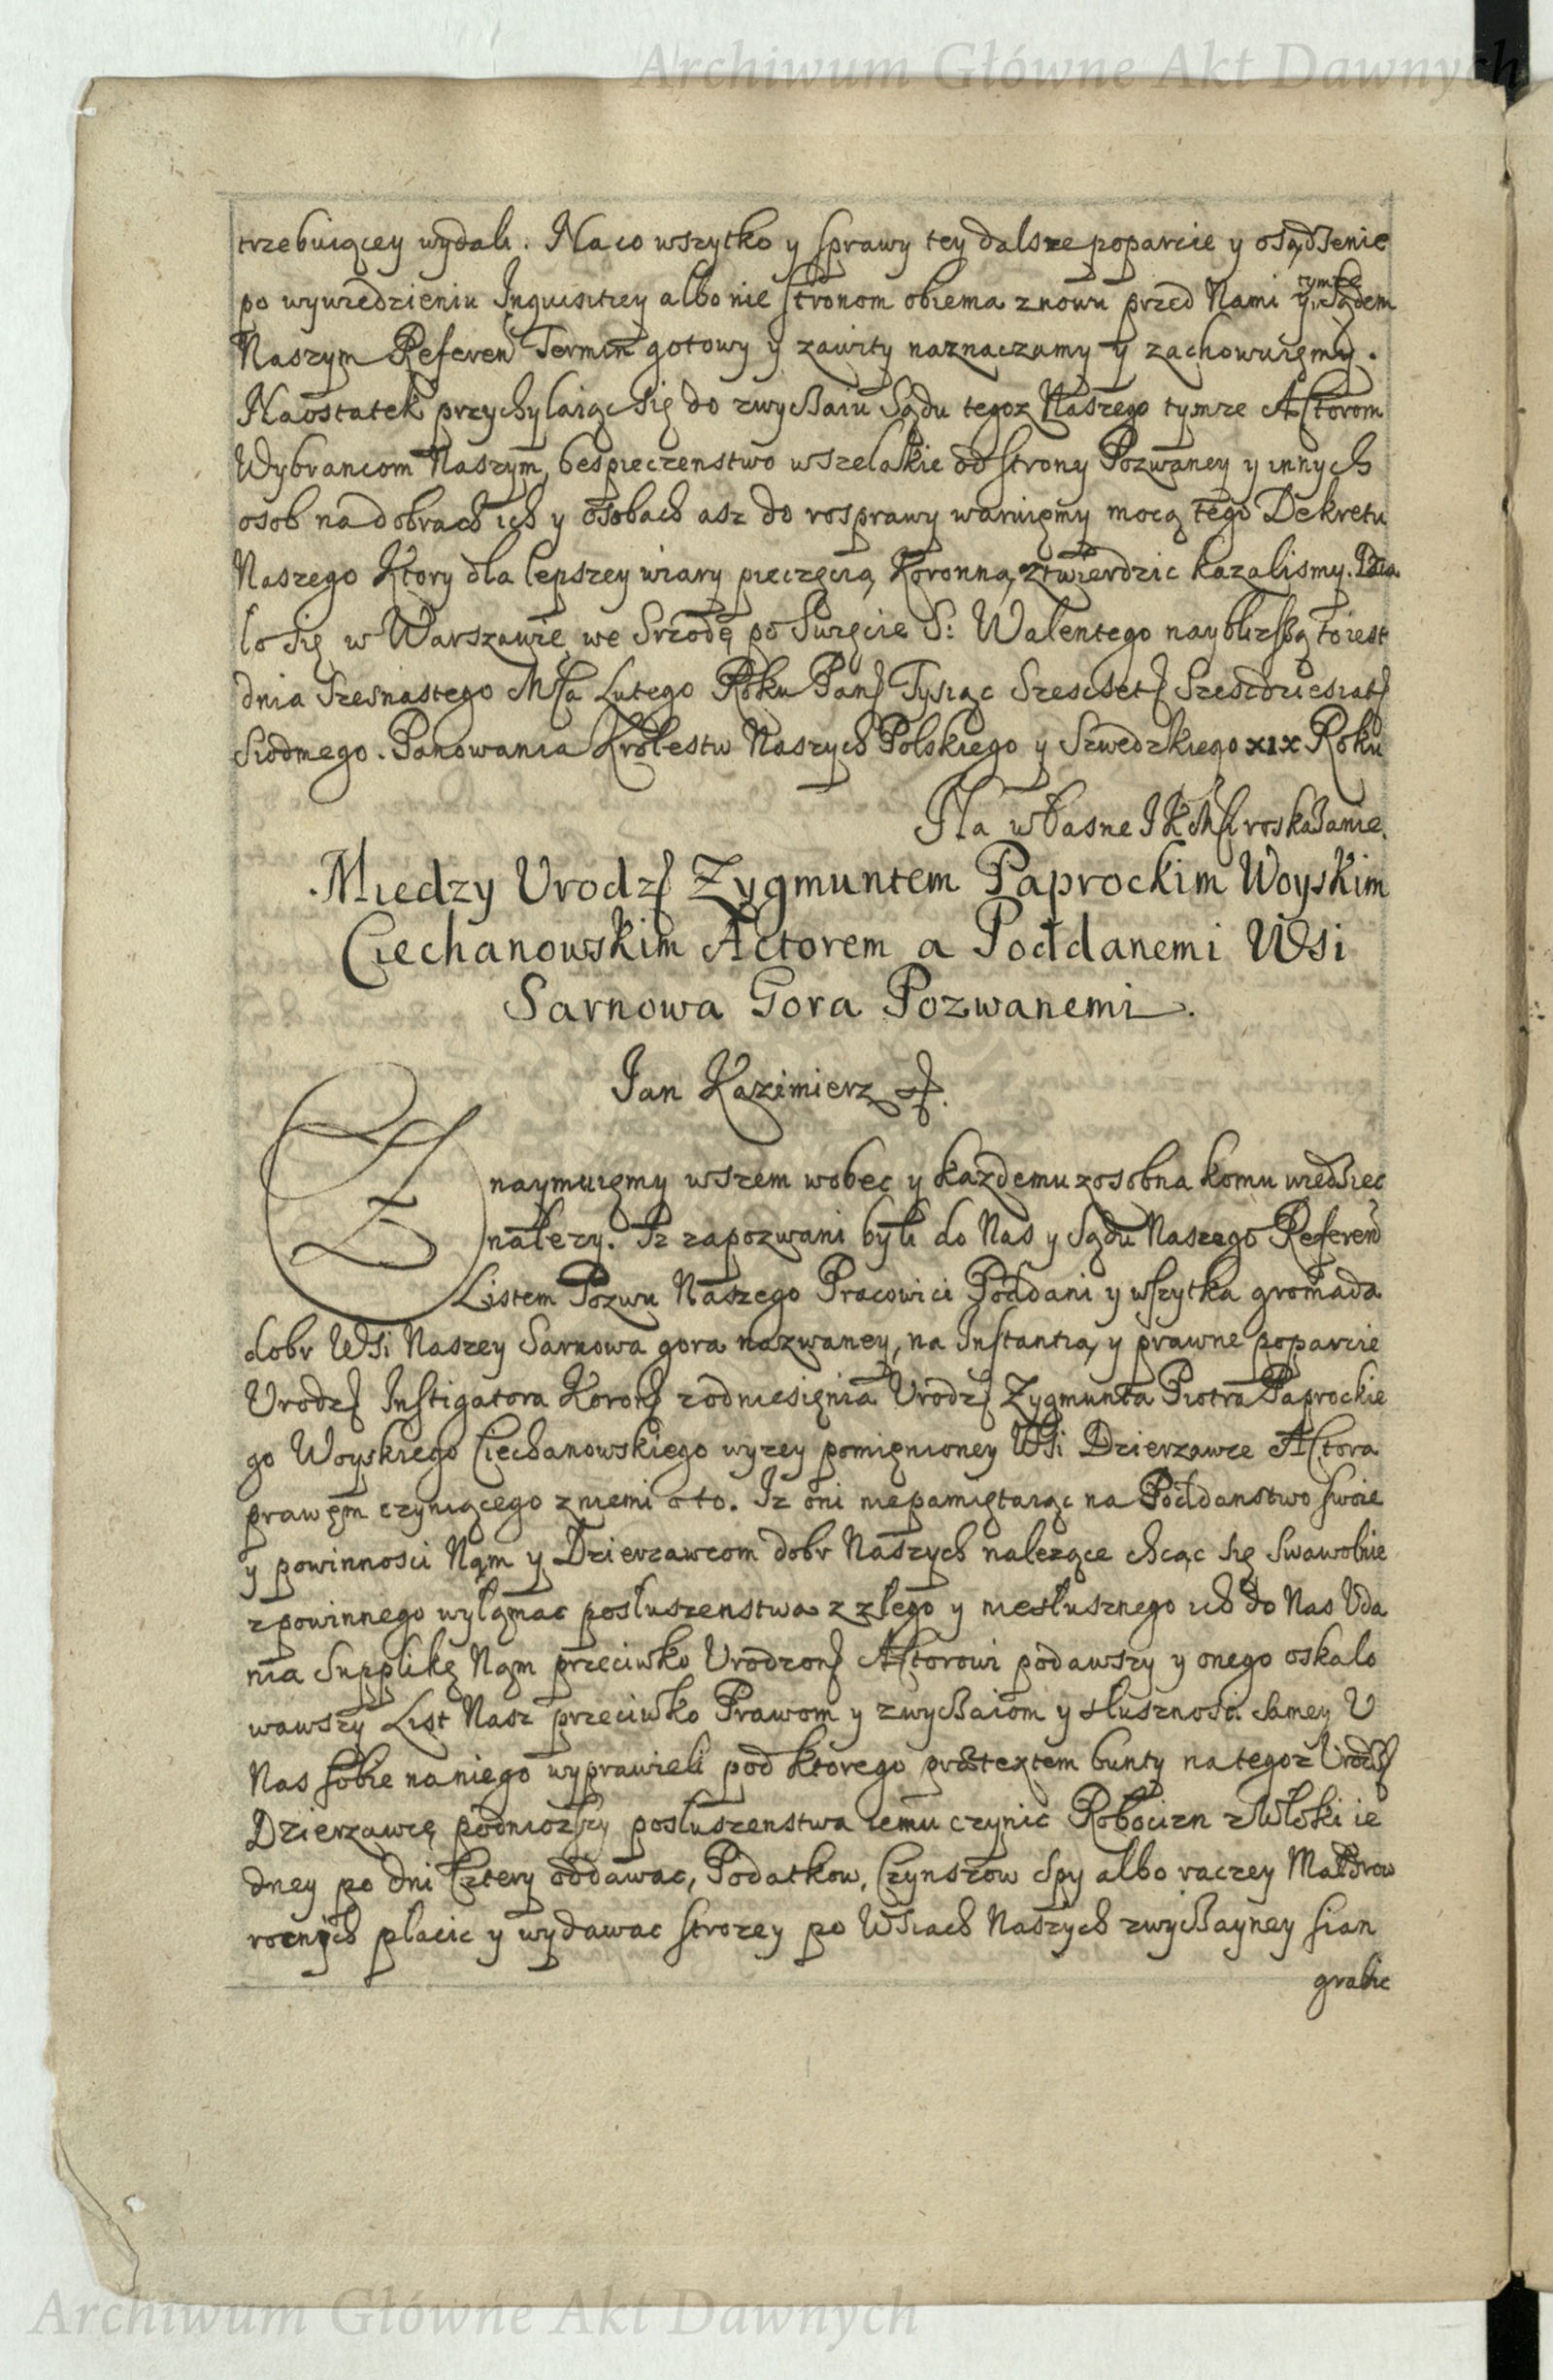 Archiwum Główne Akt Dawnych
trzebuiącey wydali. Na co wszytko y sprawy tey dalsze poparcie y osądzenie
po wywiedzieniu Inquisitiey albo nie stronom obiema znowu przed Nami y tymże Sądem
Naszym Referen Termin gotowy y zawity naznaczamy y zachowuięmy.
Naostatek przychylaiąc się do zwyczaiu Sądu tegoz Naszego tymze Actorom
Wybrancom Naszym, bespieczenstwo wszelakie od strony Pozwaney y innych
osob na dobrach ich y osobach asz do rosprawy waruięmy mocą tego Dekretu
Naszego Ktory dla lepszey wiary pieczęcią Koronną ztwierdzic kazalismy. Dzia
lo się w Warszawie we Srzodę po Swięcie S: Walentego nayblizszą to iest
dnia Szesnastego Msca Lutego Roku Pans Tysiąc Szescset Szescdziesiat
Siodmego. Panowania Krolestw Naszych Polskiego y Szwedzkiego XIX Roku
Na własne I K Msci roskazanie.
Miedzy Urodz Zygmuntem Paprockim Woyskim
Ciechanowskim Actorem a Poddanemi Wsi
Sarnowa Gora Pozwanemi.
Jan Kazimierz
Znaymuięmy wszem wobec y kazdemu zosobna komu wiedziec
nalezy. Iz zapozwani byli do Nas y Sądu Naszego Referen
Listem Pozwu Naszego Pracowici Poddani y wszytka gromada
dobr Wsi Naszey Sarnowa gora nazwaney, na Instantią y prawne poparcie
Urodz Instigatora Koron z doniesięnia Urodz Zygmunta Piotra Paprockie
go Woyskiego Ciechanowskiego wyzey pomięnioney Wsi Dzierzawce Actora
prawęm czyniącego zniemi o to. Iz oni niepamiętaiąc na Poddanstwo swoie
y powinnosci Nąm y Dzierzawcom dobr Naszych nalezące chcąc się swawolnie
zpowinnego wyłąmac posłuszenstwa z złego y niesłusznego ich do Nas Uda
nia Supplikę Nąm przeciwko Urodzon Actorowi podawszy y onego oskalo
wawszy List Nasz przeciwko Prawom y zwyczaiom y słusznosci samey U
Nas sobie naniego wyprawieli pod ktorego praetextem bunty na tegoz Urodz
Dzierzawcę podniozszy posłuszenstwa iemu czynic Robocizn z Wloki ie
dney po dni Cztery oddawac, Podatkow, Czynszow Spy albo raczey Maldrow
rocznych placic y wydawac strozey po Wsiach Naszych zwyczayney sian
grabic
Archiwum Główne Akt Dawnych